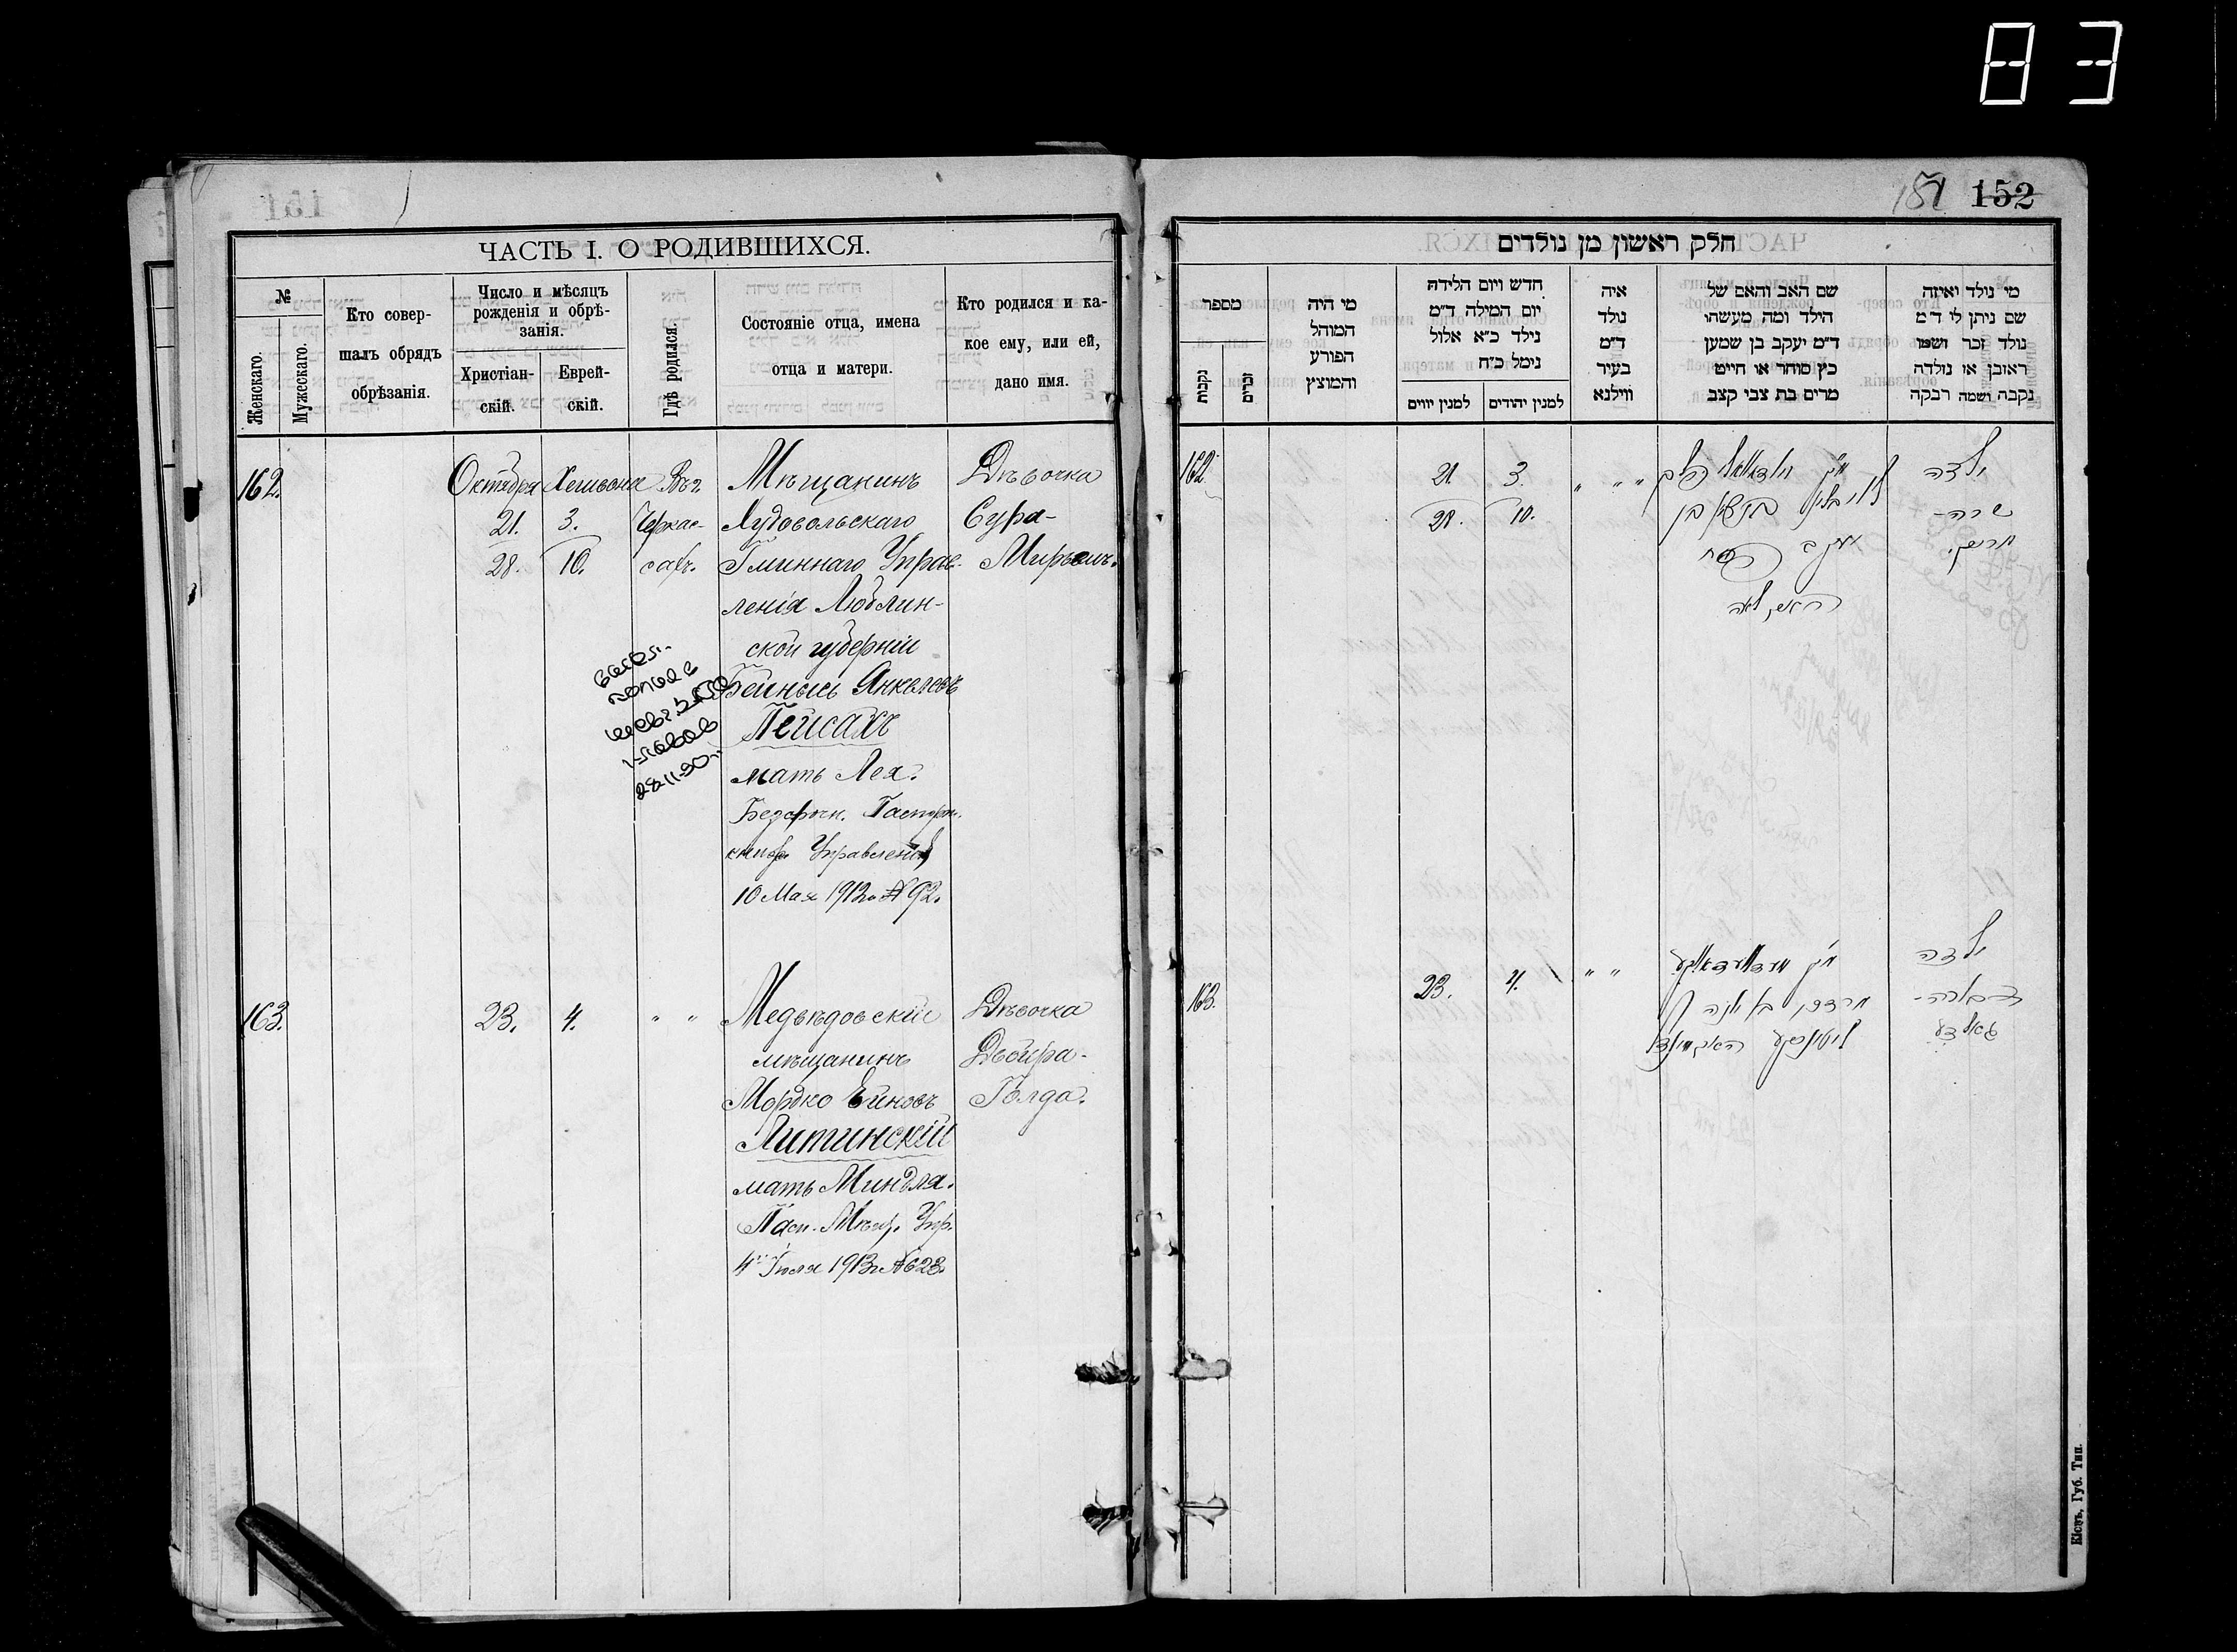 83
ЧАСТЬ I. О РОДИВШИХСЯ.
№
Женскаго.
Мужескаго.
Кто совер-
шалъ обрядъ
обрѣзанія.
Число и мѣсяцъ
рожденія и обрѣ-
занія.
Христіан-
скій.
Еврей-
скій.
Гдѣ родился.
Состояніе отца, имена
отца и матери.
Кто родился и ка-
кое ему, или ей,
дано имя.
162.
Октября
21.
28.
Хешвона
3.
10.
Въ г.
Черкас-
сахъ.
Мѣщанинъ
Лудовольскаго
Гминнаго Управ-
ленія Люблин-
ской губерніи
Бейнысь Янкелевъ
Пейсахъ
мать Лея.
Безсрочн. Паспорт.
книж. Управленія
10 Мая 1913 г. № 92.
Дѣвочка
Сура-
Мирьямъ.
28.11.90
163.
23.
4.
" "
Медвѣдовскій
мѣщанинъ
Мордко Ейновъ
Литинскій
мать Миндля.
Пасп. Мѣщ. Упр.
4 Іюля 1913 г. № 628.
Дѣвочка
Двойра-
Голда.
151 152
חלק ראשון מן נולדים
מספר
נקבות
זכרים
מי היה
המוהל
הפורע
והמוצץ
חדש ויום הלידה
יום המילה ד״מ
נילד כ״א אלול
נימל כ״ח
למנין יווים
למנין יהודים
איה
נולד
ד״מ
בעיר
ווילנא
שם האב והאם של
הילד ומה מעשהו
ד״מ יעקב בן שמען
כץ סוחר או חייט
מרים בת צבי קצב
מי נולד ואיזה
שם ניתן לו ד״מ
נולד זכר ושמו
ראובן או נולדה
נקבה ושמה רבקה
162.
21
28.
3.
10.
" " "
האם לאה
ילדה
שרה-
מרים.
163.
23.
4.
" "
ילדה
דבורה-
גאלדע
Кіевъ, Губ. Тип.